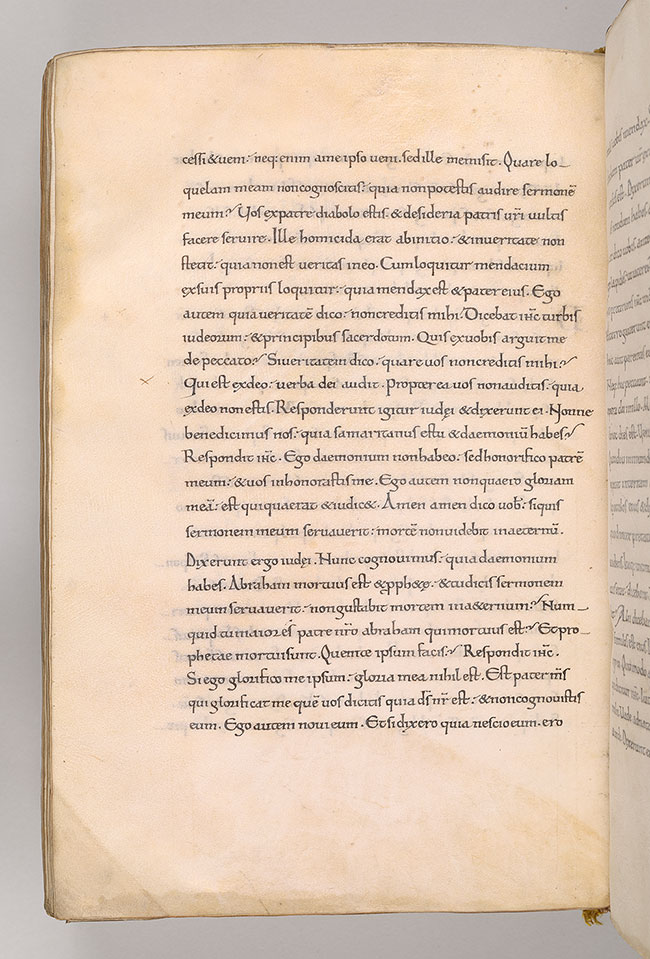 cessi & veni: neq; enim a me ipso veni. sed ille me misit. Quare lo
quelam meam non cognoscitis: quia non potestis audire sermonē
meum? Vos ex patre diabolo estis. & desideria patris vr̄i vultis
facere servire. Ille homicida erat ab initio: & in veritate non
stetit: quia non est veritas in eo. Cum loquitur mendacium
ex suis propriis loquitur: quia mendax est & pater eius. Ego
autem quia veritatē dico: non creditis mihi. Dicebat ih̄c turbis
iudeorum: & principibus sacerdotum. Quis ex vobis arguit me
de peccato? Si veritatem dico: quare vos non creditis mihi?
Qui est ex deo: verba dei audit. Propterea vos non auditis: quia
ex deo non estis. Responderunt igitur iudęi & dixerunt ei. Nonne
benedicimus nos: quia samaritanus es tu & daemoniū habes?
Respondit ih̄c. Ego daemonium non habeo: sed honorifico patrē
meum: & vos inhonorastis me. Ego autem non quaero gloriam
meā: est qui quaerat & iudic&. Amen amen dico vob: siquis
sermonem meum servaverit: mortē non videbit in aeternū.
Dixerunt ergo iudęi. Nunc cognovimus: quia daemonium
habes. Abraham mortuus est & pph&ę: & tu dicis si sermonem
meum servaverit: non gustabit mortem in a&ernum? Num
quid tu maior es patre nr̄o abraham qui mortuus est? Et pro
phetae mortui sunt. Quem te ipsum facis? Respondit ih̄c.
Si ego glorifico me ipsum: gloria mea nihil est. Est pater m̄s
qui glorificat me quē vos dicitis quia d̄s nr̄ est: & non cognovistis
eum. Ego autem novi eum. Et si dixero quia nescio eum. ero